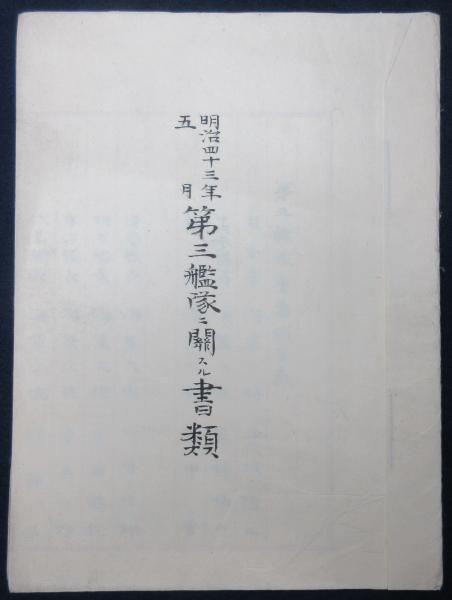 明治四十三年
五月
第三艦隊ニ關スル書類